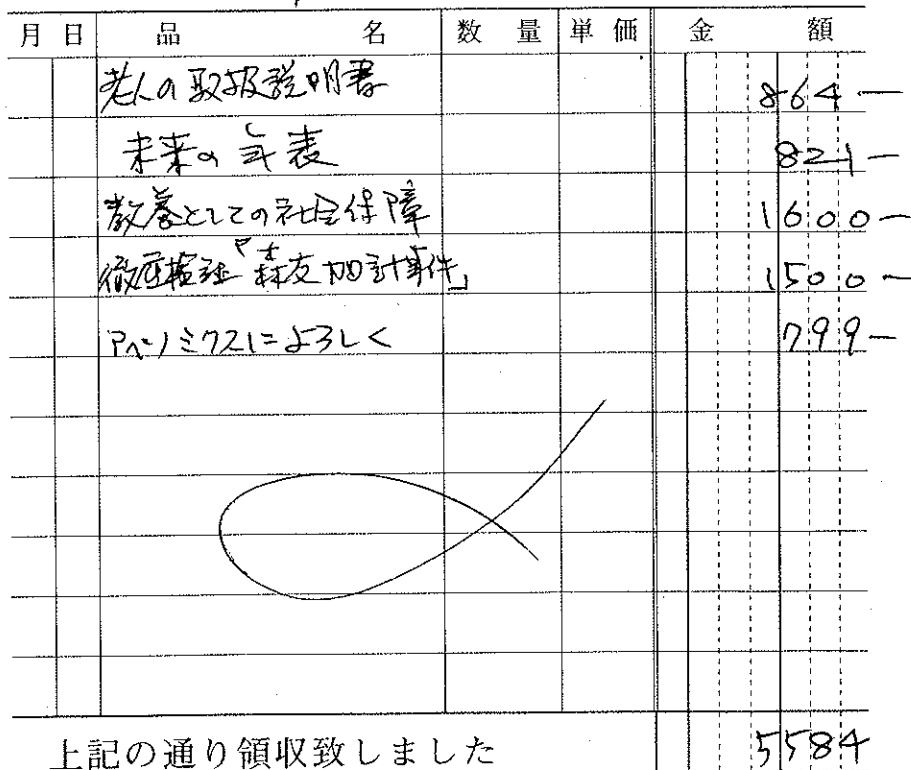 月 日 品 名 数 量 単 価 金 額
老人の取扱説明書 864-
未来の年表 821-
教養としての社会保障 1600-
徹底検証『森友加計事件』 1500-
アベノミクスによろしく 799-
上記の通り領収致しました 5584